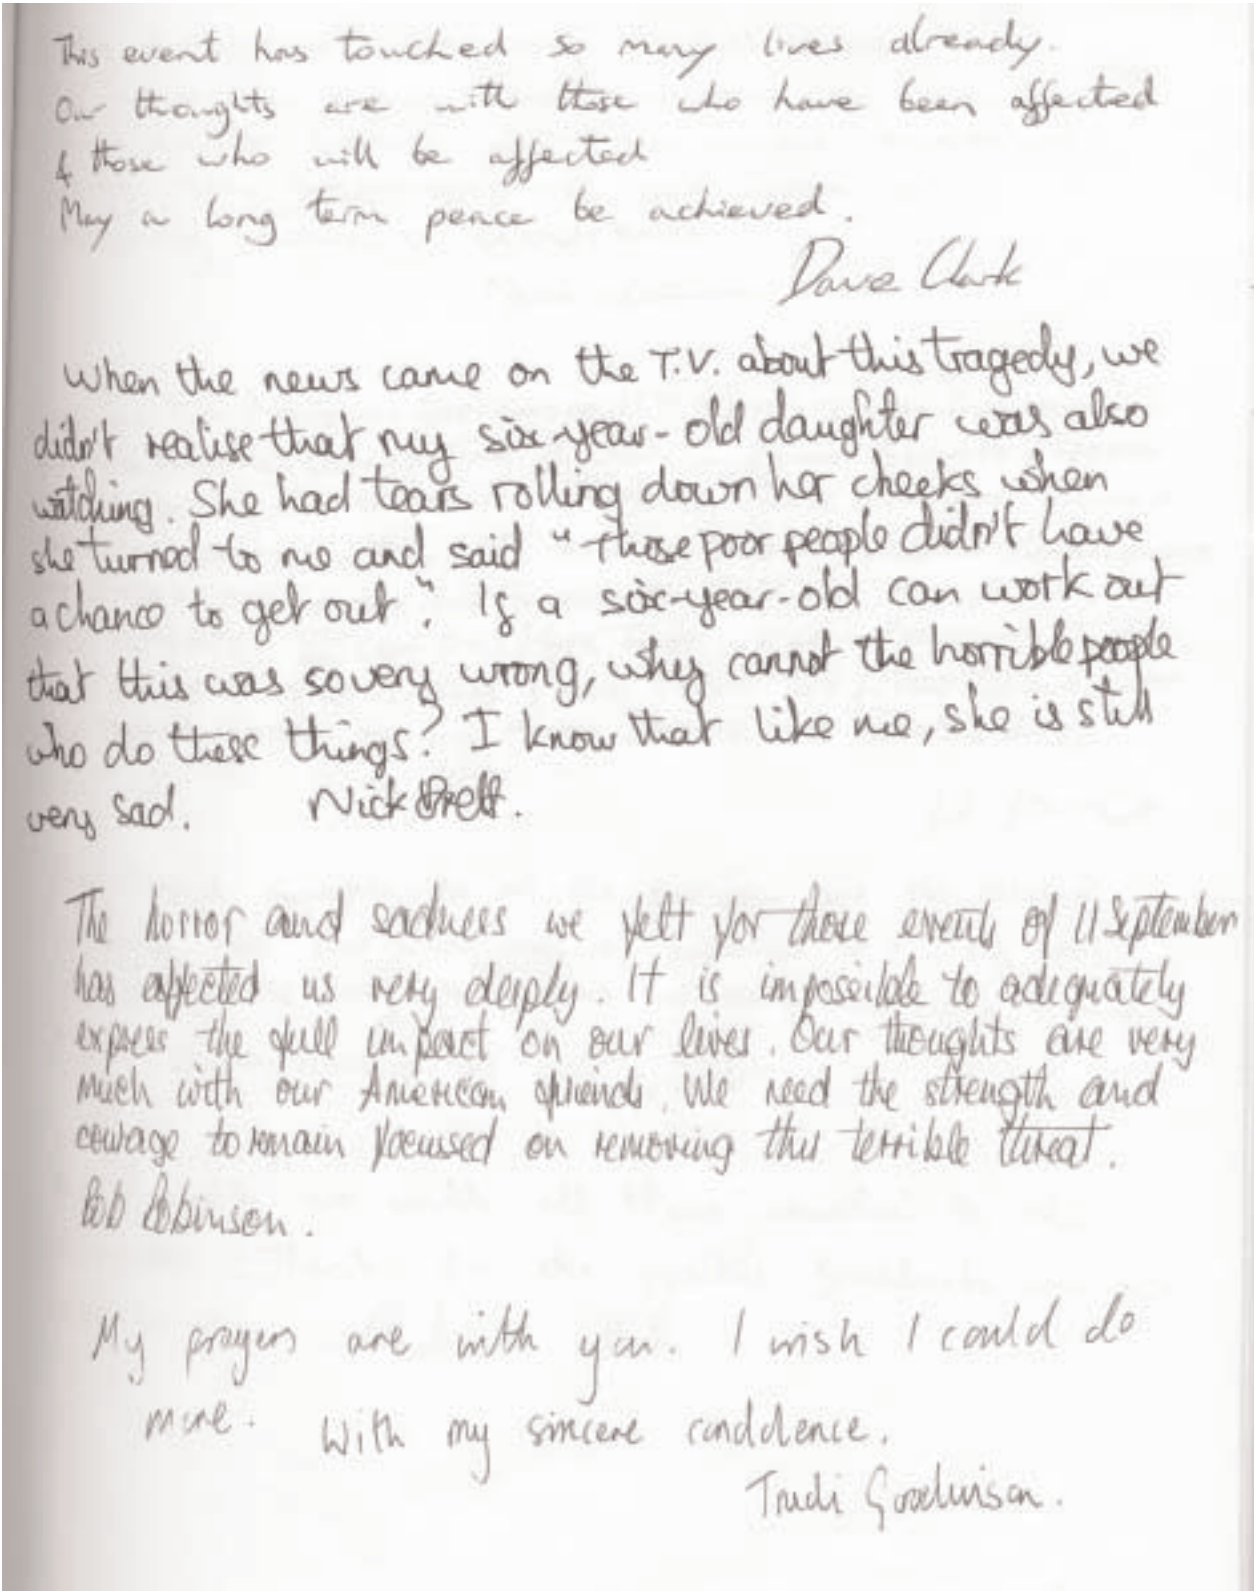 This event has touched so many lives already.
Our thoughts are with those who have been affected
& those who will be affected
May a long term peace be achieved.
Dave Clark
When the news came on the T.V. about this tragedy, we
didn't realise that my six-year-old daughter was also
watching. She had tears rolling down her cheeks when
she turned to me and said "Those poor people didn't have
a chance to get out". If a six-year-old can work out
that this was so very wrong, why cannot the horrible people
who do these things? I know that like me, she is still
very sad. Nick Brett.
The horror and sadness we felt for those events of 11 September
has affected us very deeply. It is impossible to adequately
express the full impact on our lives. Our thoughts are very
much with our American friends. We need the strength and
courage to remain focussed on removing this terrible threat.
Bob Robinson.
My prayers are with you. I wish I could do
more. With my sincere condolence.
Trudi